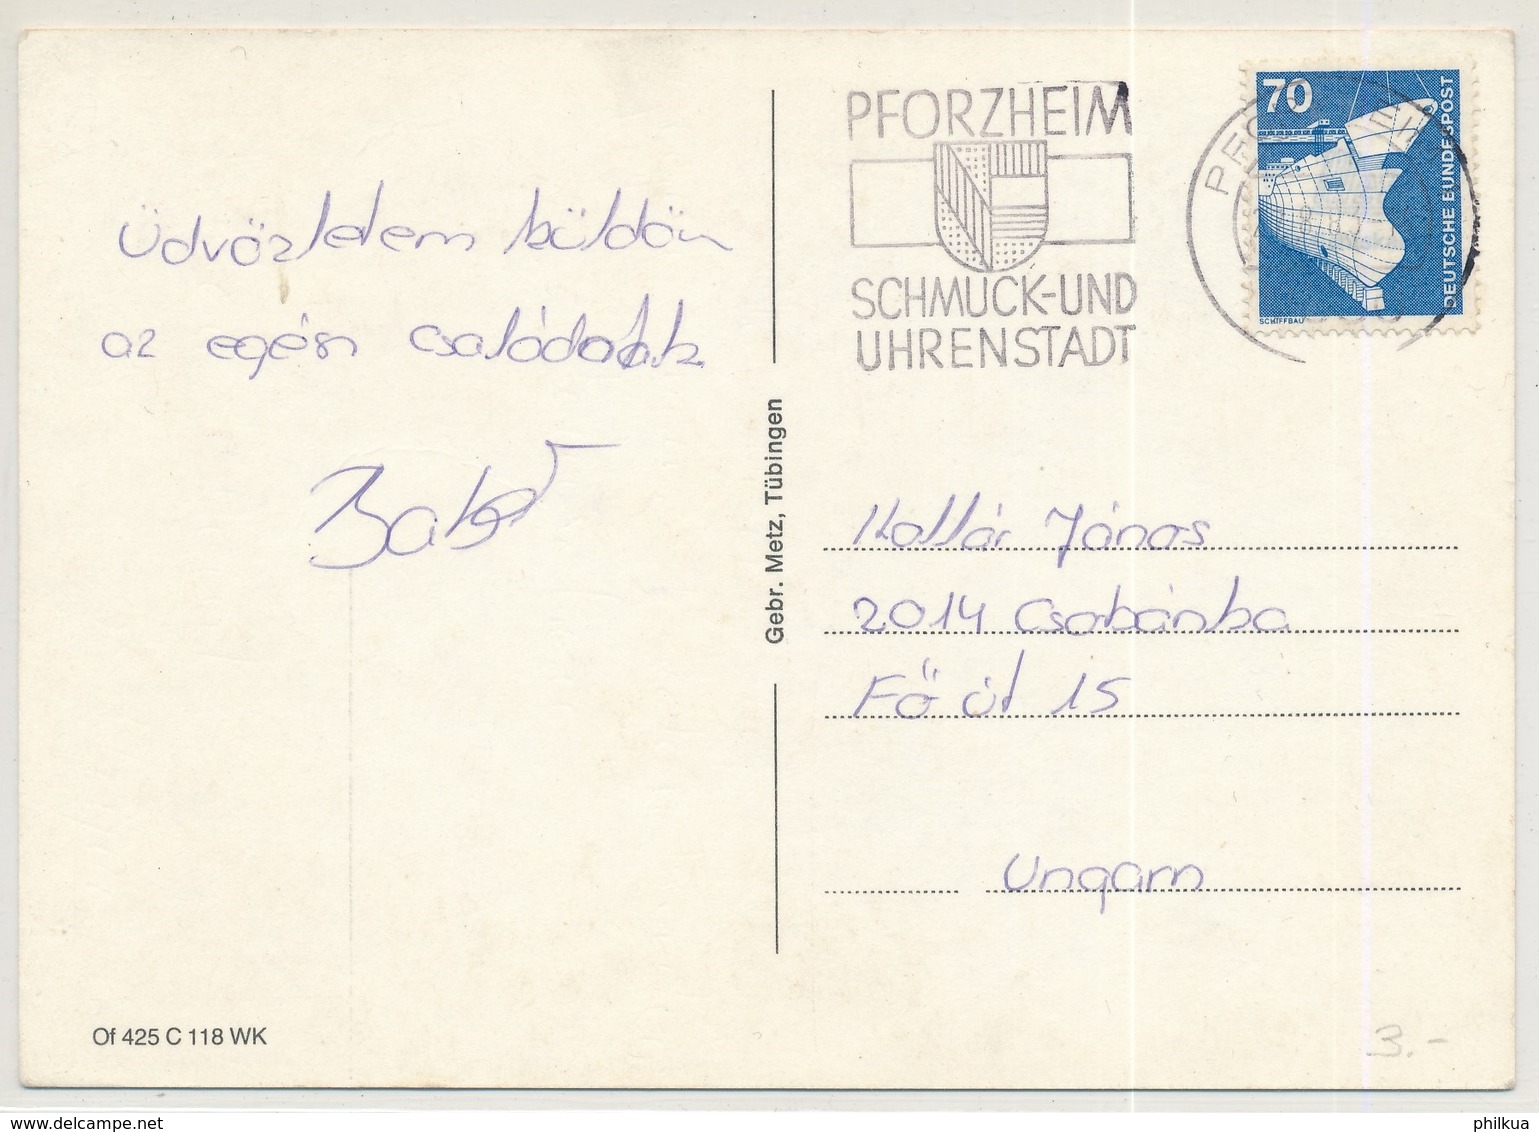 PFORZHEIM
SCHMUCK-UND
UHRENSTADT
70
DEUTSCHE BUNDESPOST
SCHIFFBAU
Üdvözletem küldöm
az egész családnak
Gebr. Metz, Tübingen
Kollár János
2014 Csobánka
Fő út 15
Ungarn
Of 425 C 118 WK
3.-
www.delcampe.net
philkua